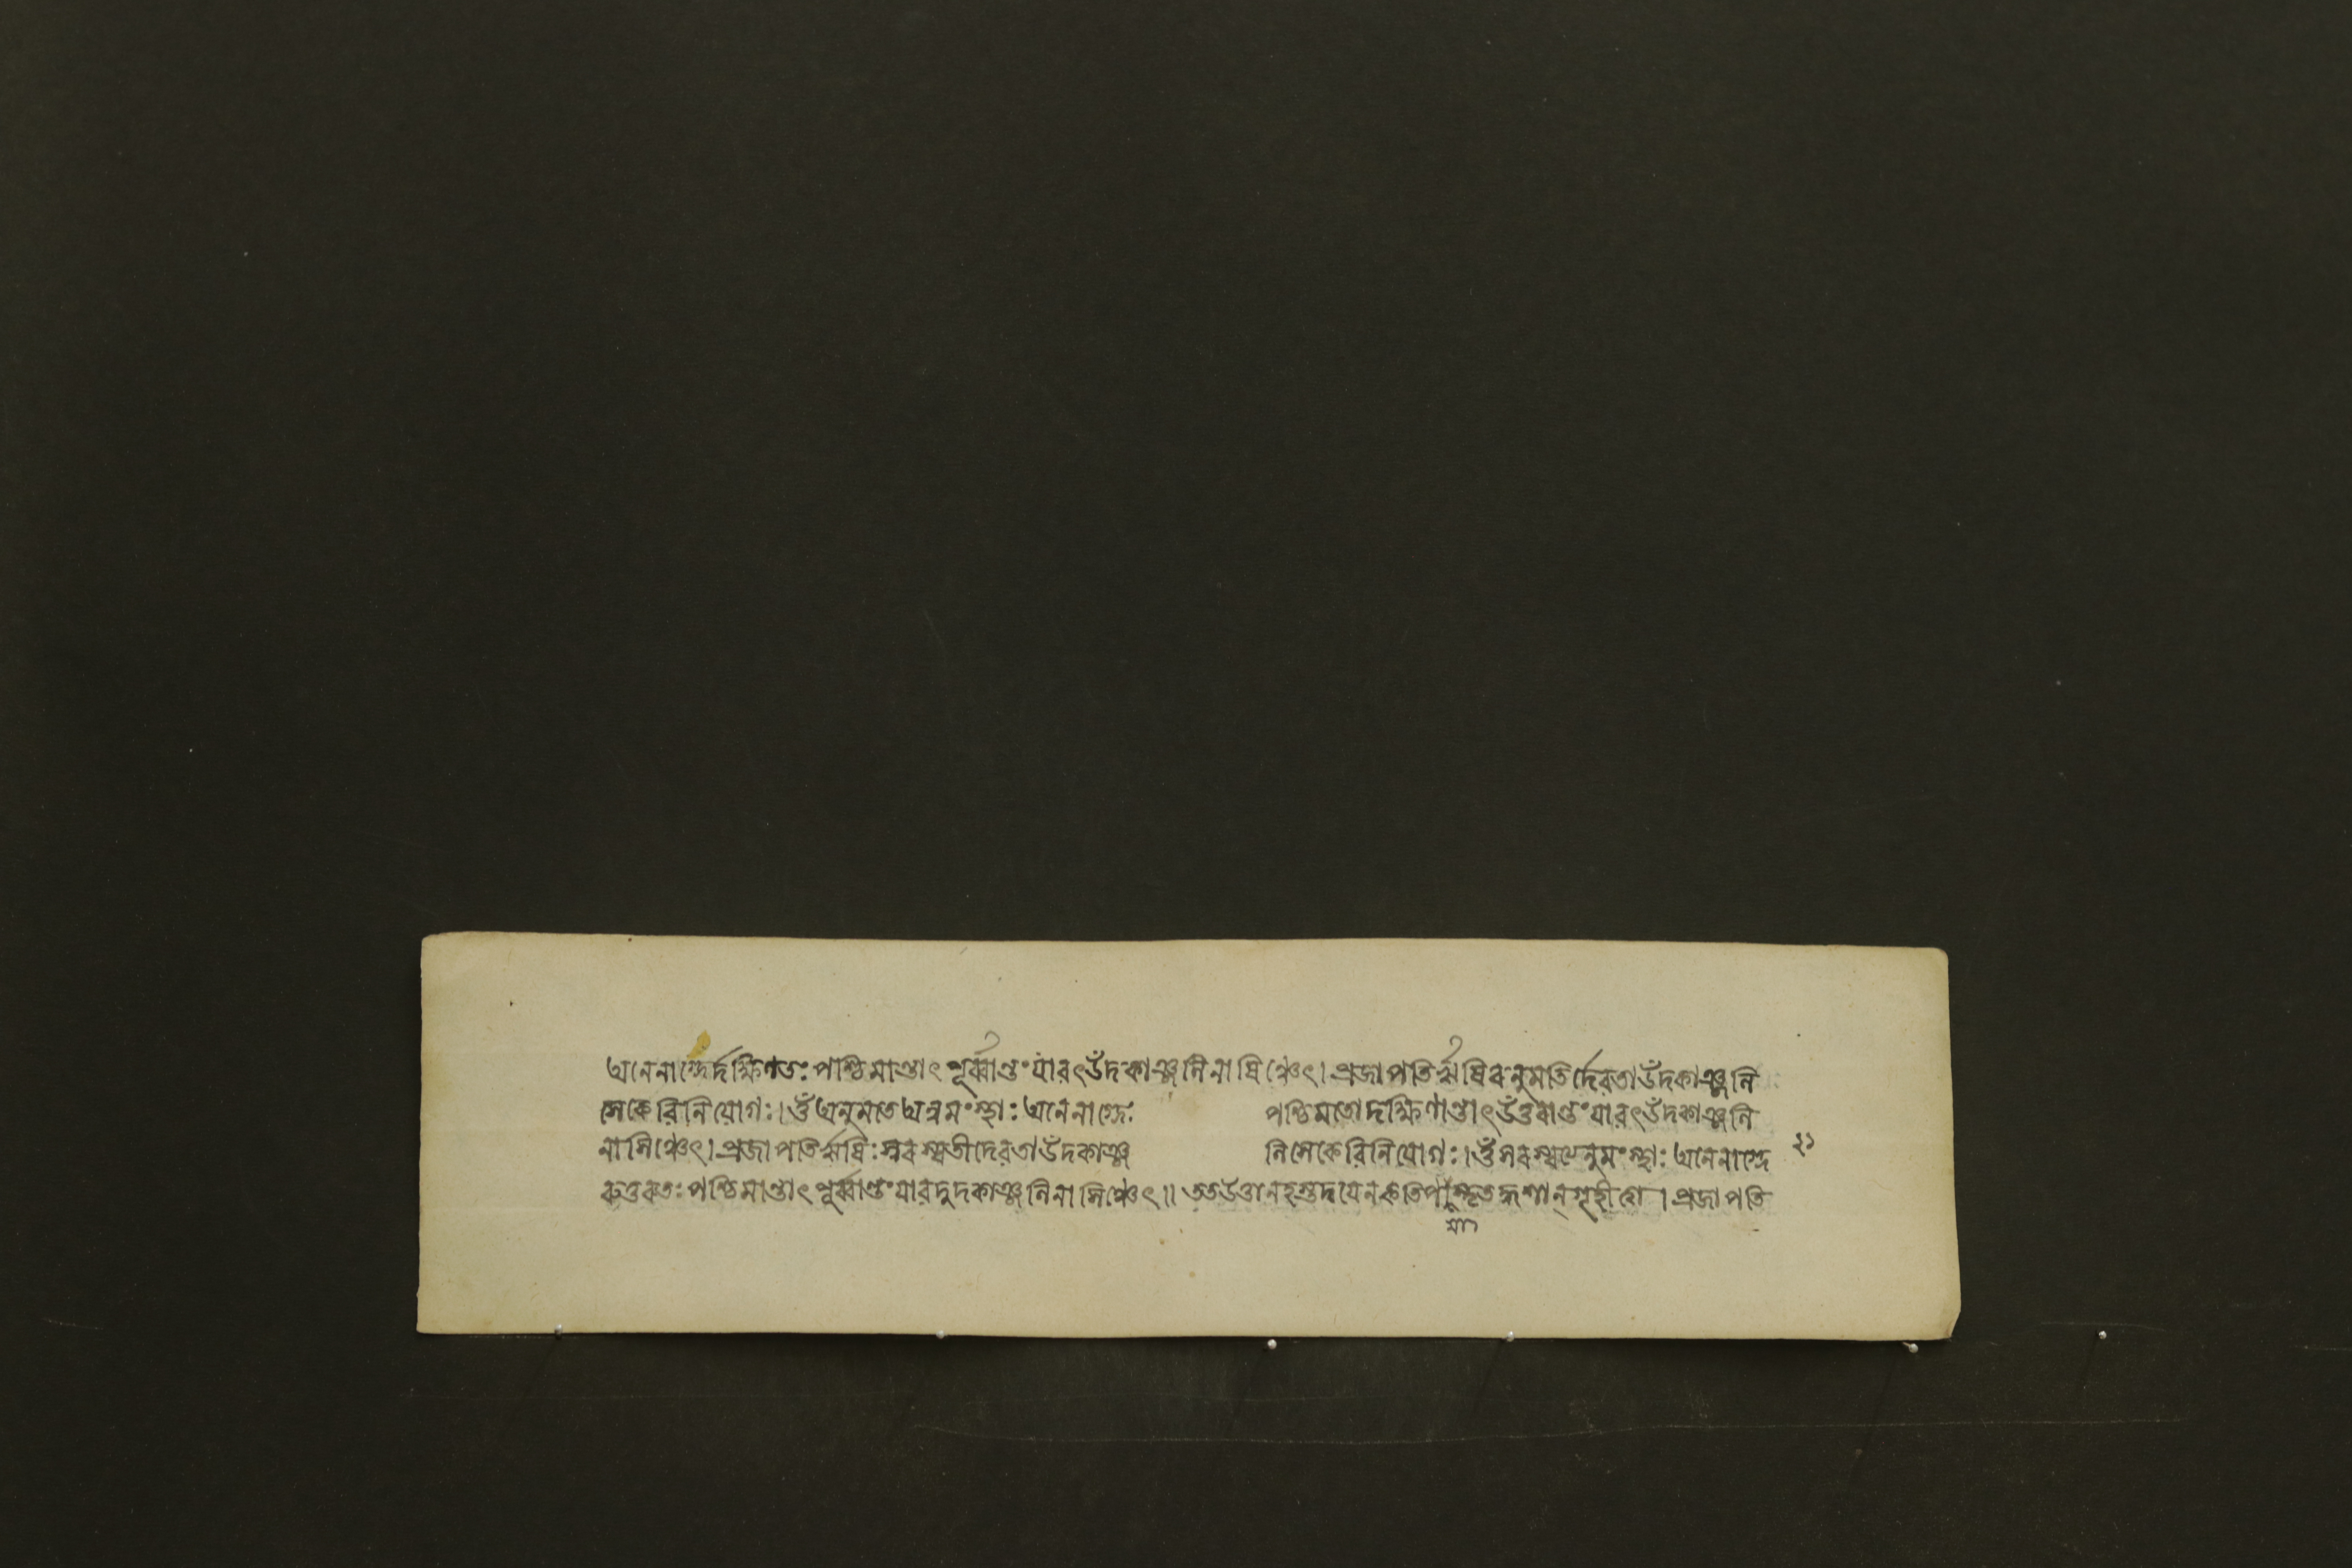 অনেনাগ্নের্দক্ষিণতঃ পশ্চিমান্তাৎ পূর্ব্বান্তং যাবৎ উদকাঞ্জলিনা ষিঞ্চেৎ। প্রজাপতির্ঋষিরনুমতির্দেবতা উদকাঞ্জলি
সেকে বিনিয়োগঃ। ওঁ অনুমতে অন্নমংস্থাঃ অনেনাগ্নেঃ পশ্চিমতো দক্ষিণান্তাৎ উত্তরান্তং যাবৎ উদকাঞ্জলি
না সিঞ্চেৎ। প্রজাপতির্ঋষিঃ সরস্বতী দেবতা উদকাঞ্জ লিসেকে বিনিয়োগঃ। ওঁ সরস্বত্যেনুমংস্থাঃ অনেনাগ্নে ২১
রুত্তরতঃ পশ্চিমান্তাৎ পূর্ব্বান্তং যাবদুদকাঞ্জলিনা সিঞ্চেৎ॥ তত উত্তানহস্তদ্বয়েন কুশান্ গৃহীত্বা। প্রজাপতি